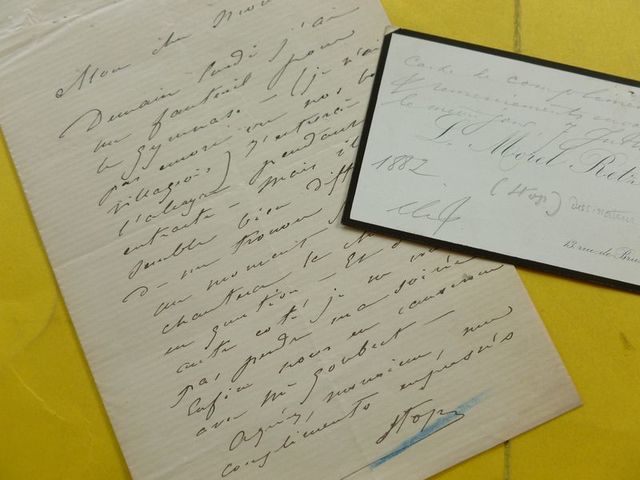 Mon cher Mon
Demain lundi j'ai
un fauteuil pour
le gymnase – (je n'ai
pas encore vu nos
villageois) J'entrerai
l'abeye pendant
entracte – Mais il
semble bien diff
d- me trouver
au moment
chantera le
en question – Et d
autre coté je ne v
pas perdre ma soirée
Enfin nous en causerons
avec Mr Goubert –
Agréez, monsieur, mes
compliments empressés
Stop
Carte de complimen
& remerciements
L. Morel-Retz
(Stop) Dessinateur
1882
13 rue de Bru